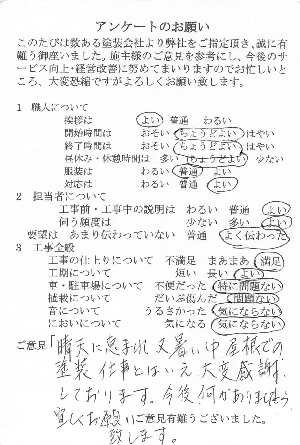 アンケートのお願い
このたびは数ある塗装会社より弊社をご指定頂き、誠に有
難う御座いました。施主様のご意見を参考にし、今後のサ
ービス向上・経営改善に努めてまいりますのでお忙しいと
ころ、大変恐縮ですがよろしくお願い致します。
1 職人について
挨拶は よい 普通 わるい
開始時間は おそい ちょうどよい はやい
終了時間は おそい ちょうどよい はやい
昼休み・休憩時間は 多い ちょうどよい 少ない
服装は わるい 普通 よい
対応は わるい 普通 よい
2 担当者について
工事前・工事中の説明は わるい 普通 よい
伺う頻度は 少ない 多い よい
要望は あまり伝わっていない 普通 よく伝わった
3 工事全般
工事の仕上りについて 不満足 まあまあ 満足
工期について 短い 長い よい
車・駐車場について 不便だった 特に問題ない
植栽について だいぶ傷んだ 問題ない
音について うるさかった 気にならない
においについて 気になる 気にならない
ご意見「晴天に恵まれ又暑い中屋根での
塗装仕事とはいえ大変感謝
しております。今後何かありましたら
宜しくお願い ご意見有難うございました。
致します。